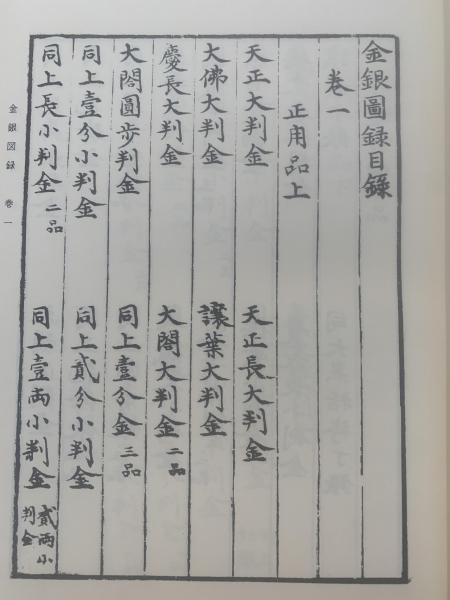 金銀圖録目錄
巻一
正用品上
天正大判金
天正長大判金
大佛大判金
讓葉大判金
慶長大判金
大閤大判金 二品
大閤圓步判金
同上壹分金 三品
同上壹分小判金
同上貳分小判金
同上長小判金 二品
同上壹両小判金 貳両小判金
金銀図録 巻一